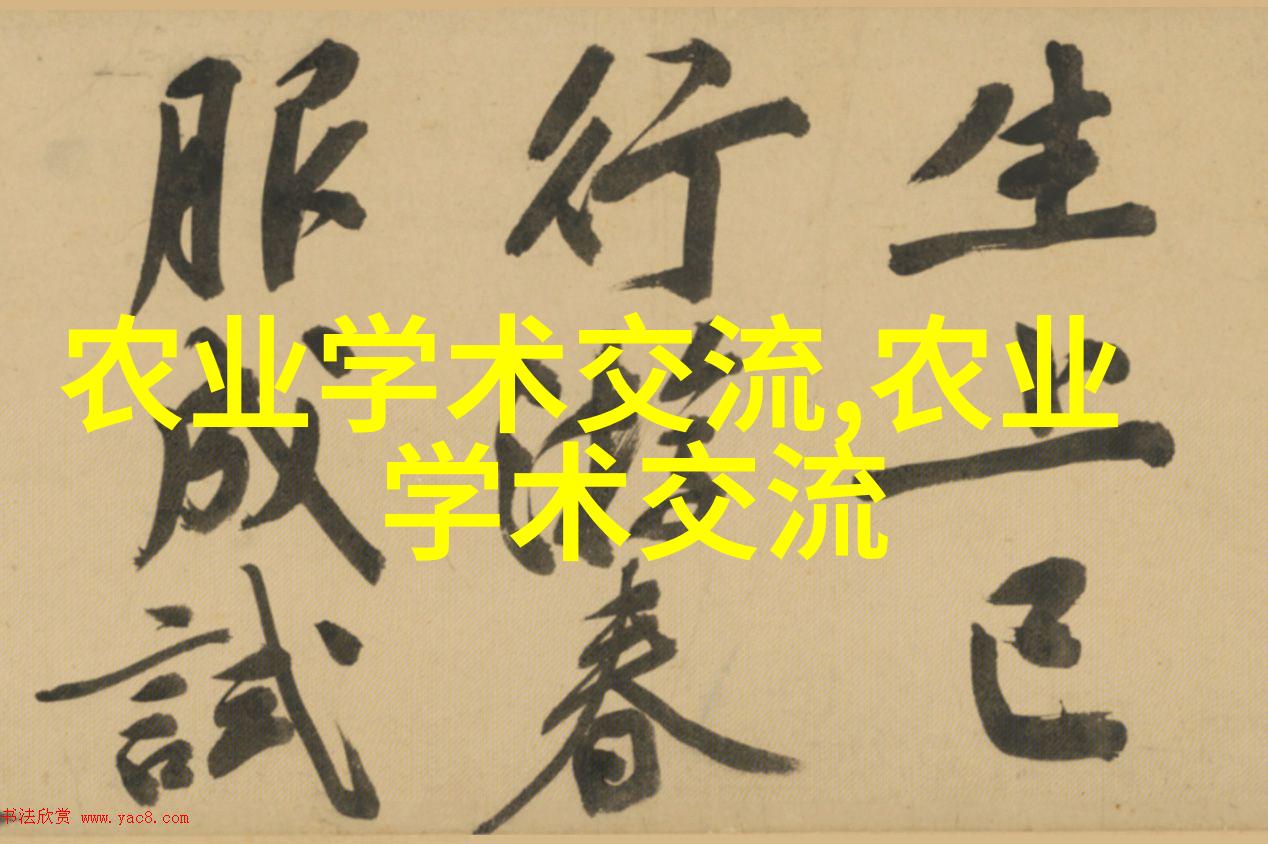 生上已
行春
服成試
农业学术交流,农业
学术交流
书法欣赏 www.yac8.com